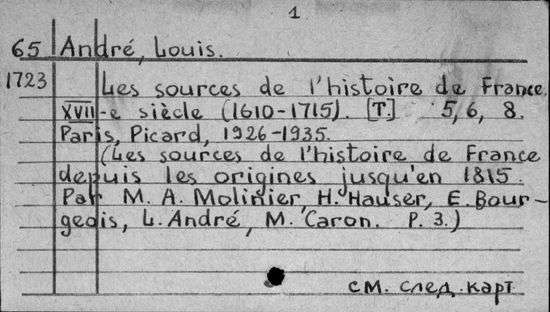 1
65 André, Louis.
1723 Les sources de l'histoire de France.
XVII-e siècle (1610-1715). [T.] 5, 6, 8.
Paris, Picard, 1926-1935.
(Les sources de l'histoire de France
depuis les origines jusqu'en 1815.
Par M. A. Molinier, H. Hauser, E. Bour-
geois, L. André, M. Caron. P. 3.)
см. след. карт.